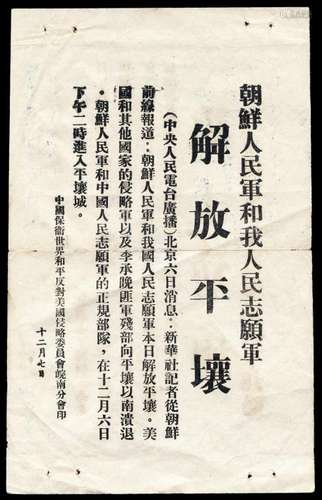 朝鮮人民軍和我人民志願軍
解放平壤
(中央人民電台廣播)北京六日消息：新華社記者從朝鮮
前線報道：朝鮮人民軍和我國人民志願軍本日解放平壤。美
國和其他國家的侵略軍以及李承晚匪軍殘部向平壤以南潰退
。朝鮮人民軍和中國人民志願軍的正規部隊，在十二月六日
下午二時進入平壤城。
中國保衛世界和平反對美國侵略委員會皖南分會印
十二月七日